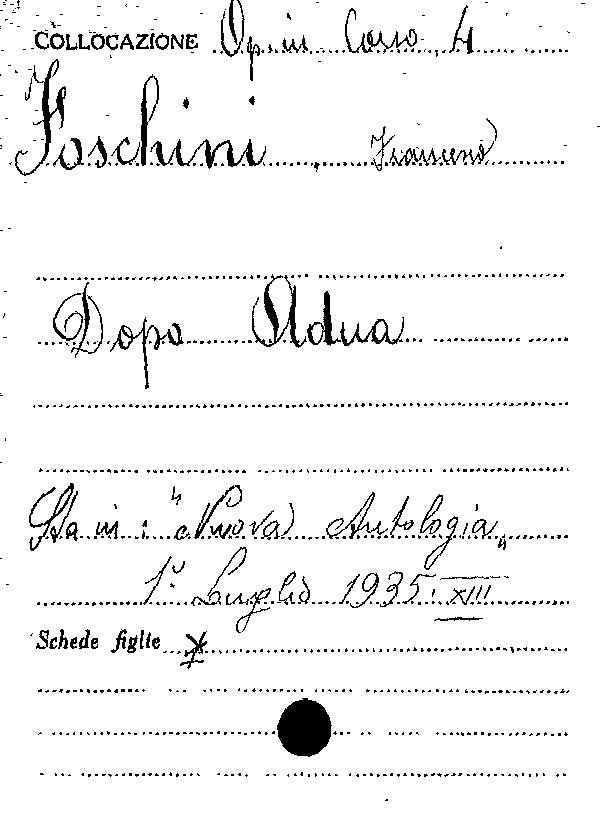 COLLOCAZIONE Op. in Corso 4
Foschini, Francesco
Dopo Adua
Sta in: "Nuova Antologia„
1° Luglio 1935. XIII
Schede figlie